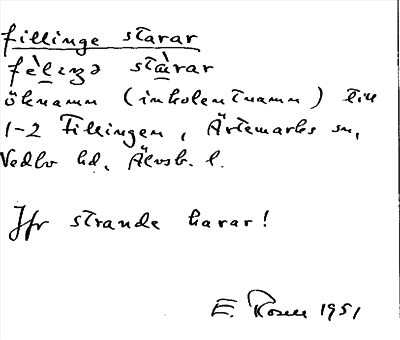 fillinge starar
fè̀lıŋə stæ̀rar
öknamn (inkolentnamn) till
1-2 Fillingen, Ärtemarks sn,
Vedbo hd, Älvsb. l.
Jfr strande harar!
E. Rosell 1951